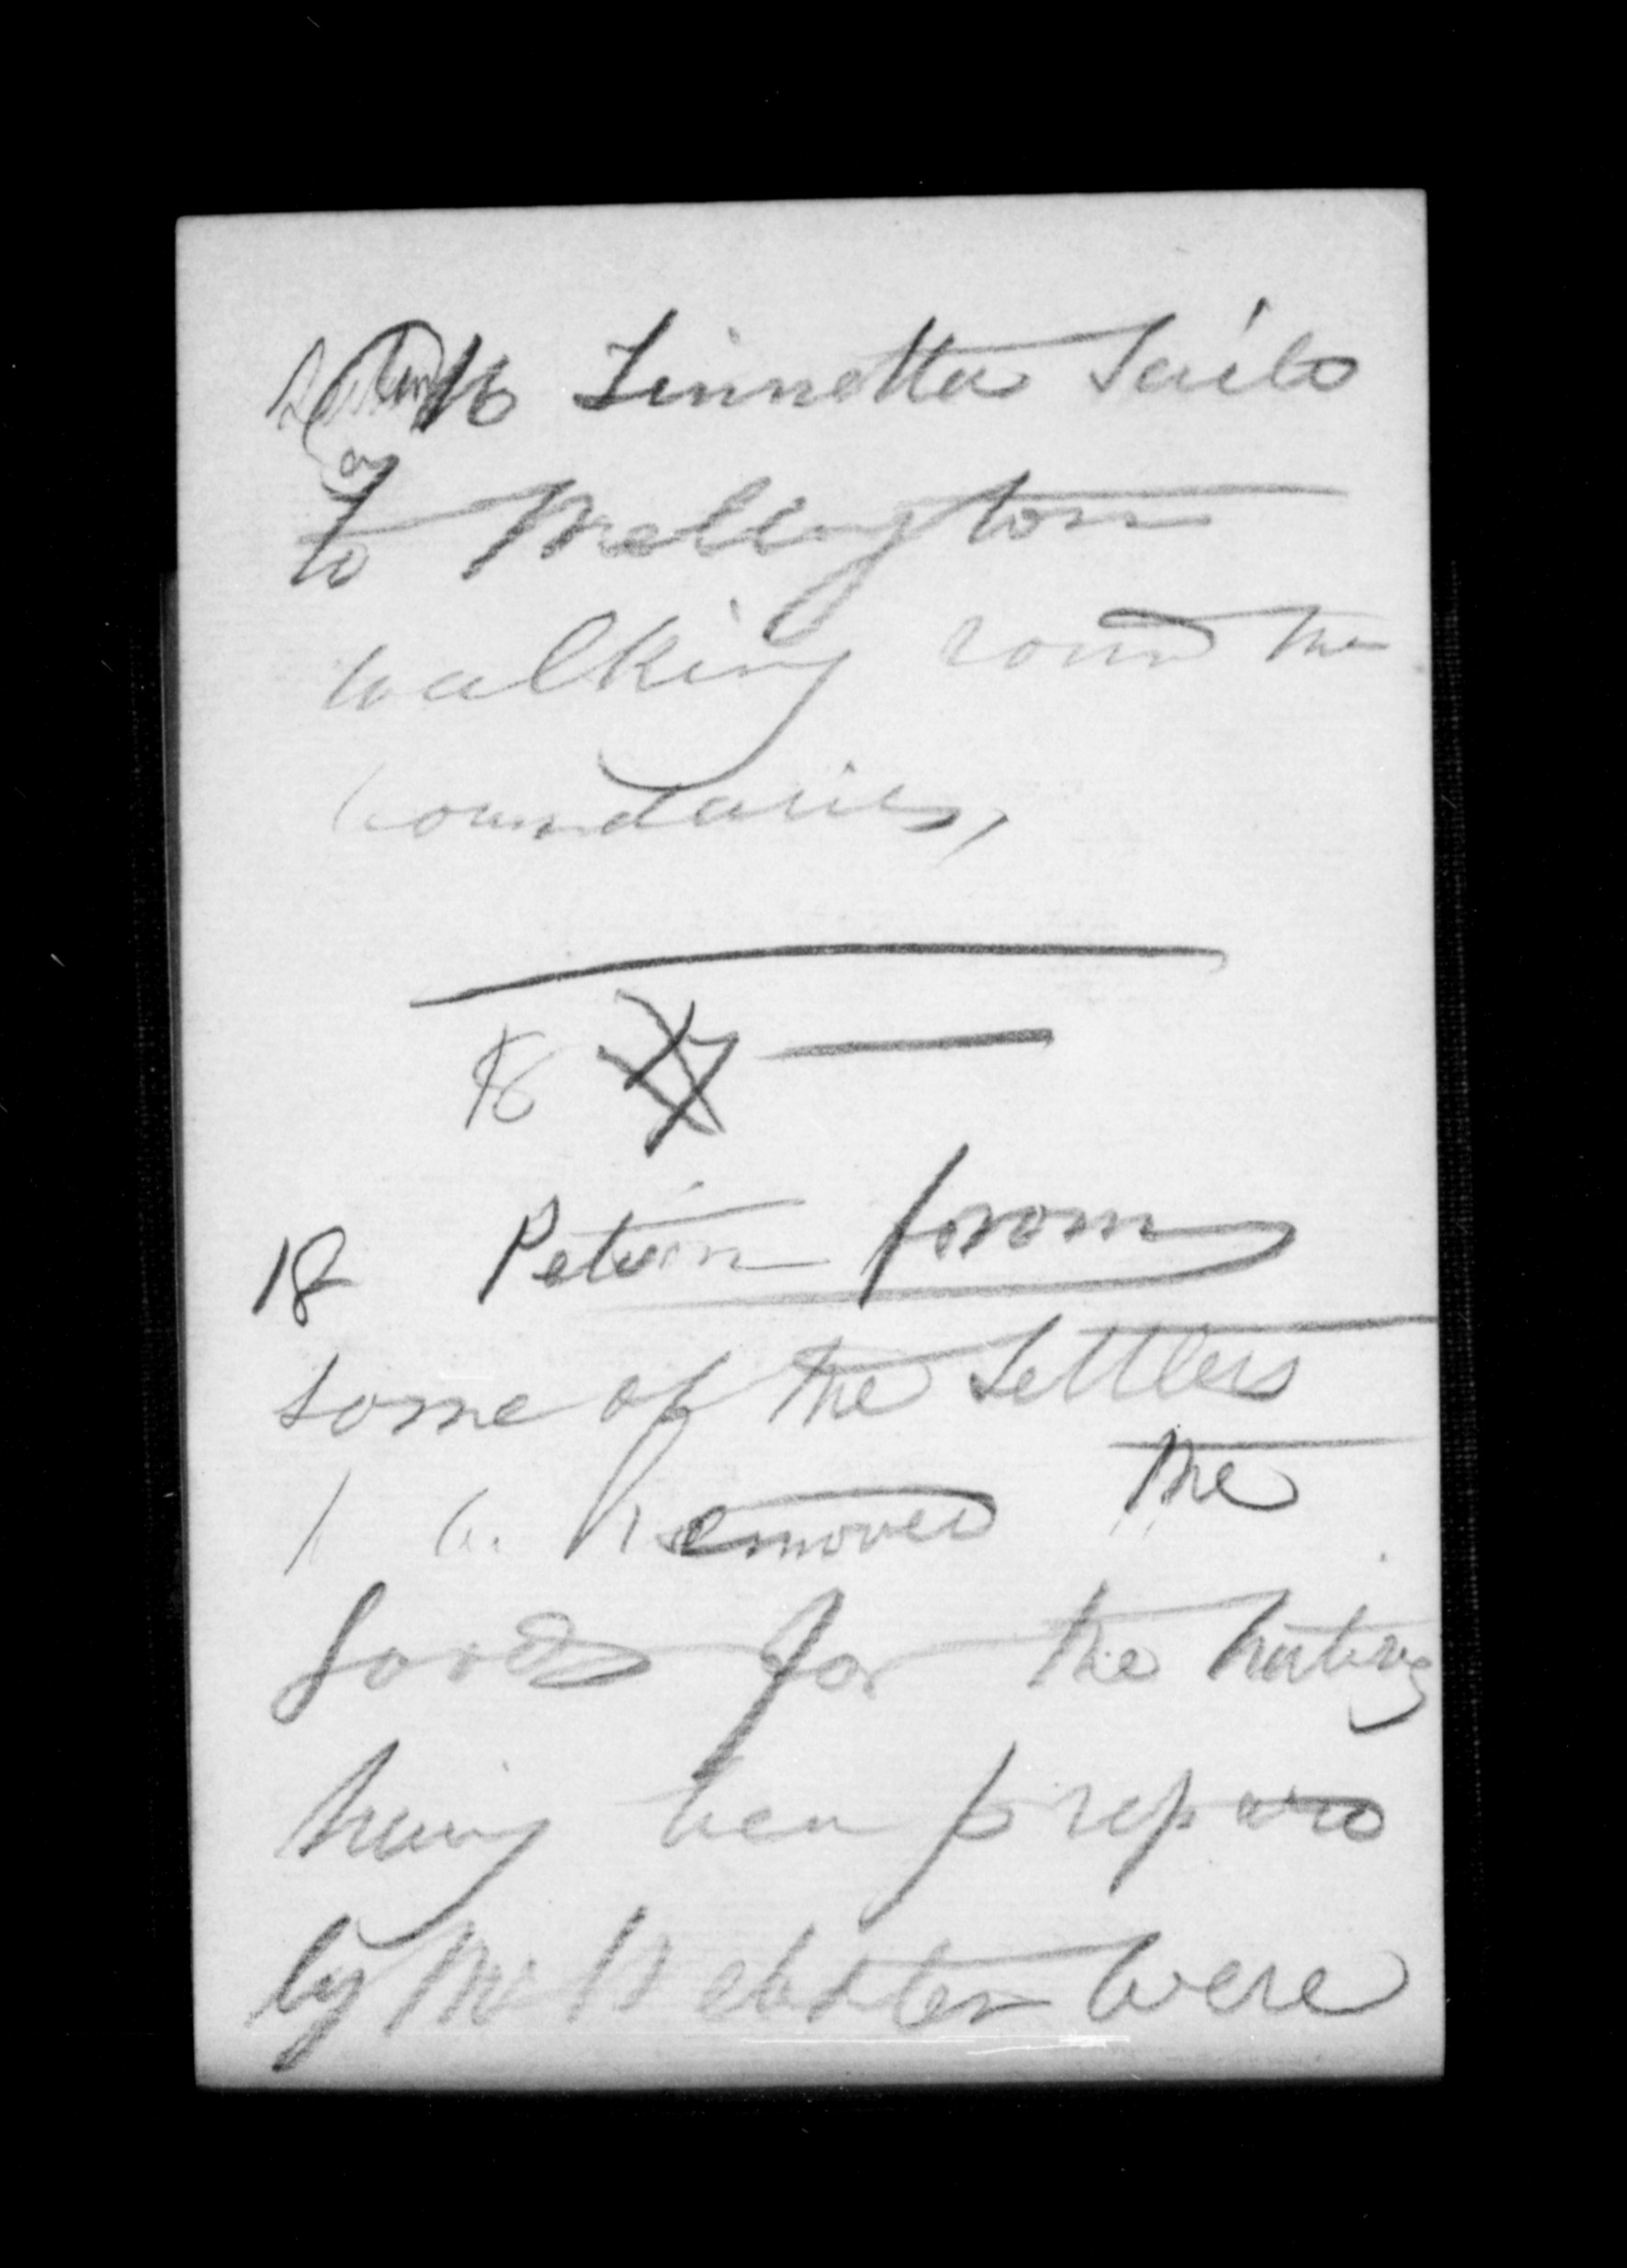 16 Linnetta Sails
to Wellington
walking round the
boundaries,
18
18 Petition from
some of the Settlers
to be Removed the
goods for the natives
having been prepared
by Mr Webster were